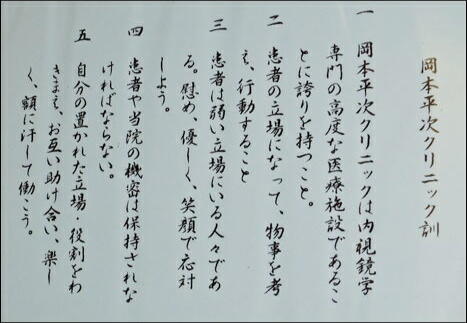 岡本平次クリニック訓
一 岡本平次クリニックは内視鏡学
専門の高度な医療施設であるこ
とに誇りを持つこと。
二 患者の立場になって、物事を考
え、行動すること
三 患者は弱い立場にいる人々であ
る。慰め、優しく、笑顔で応対
しよう。
四 患者や当院の機密は保持されな
ければならない。
五 自分の置かれた立場・役割をわ
きまえ、お互い助け合い、楽し
く、額に汗して働こう。